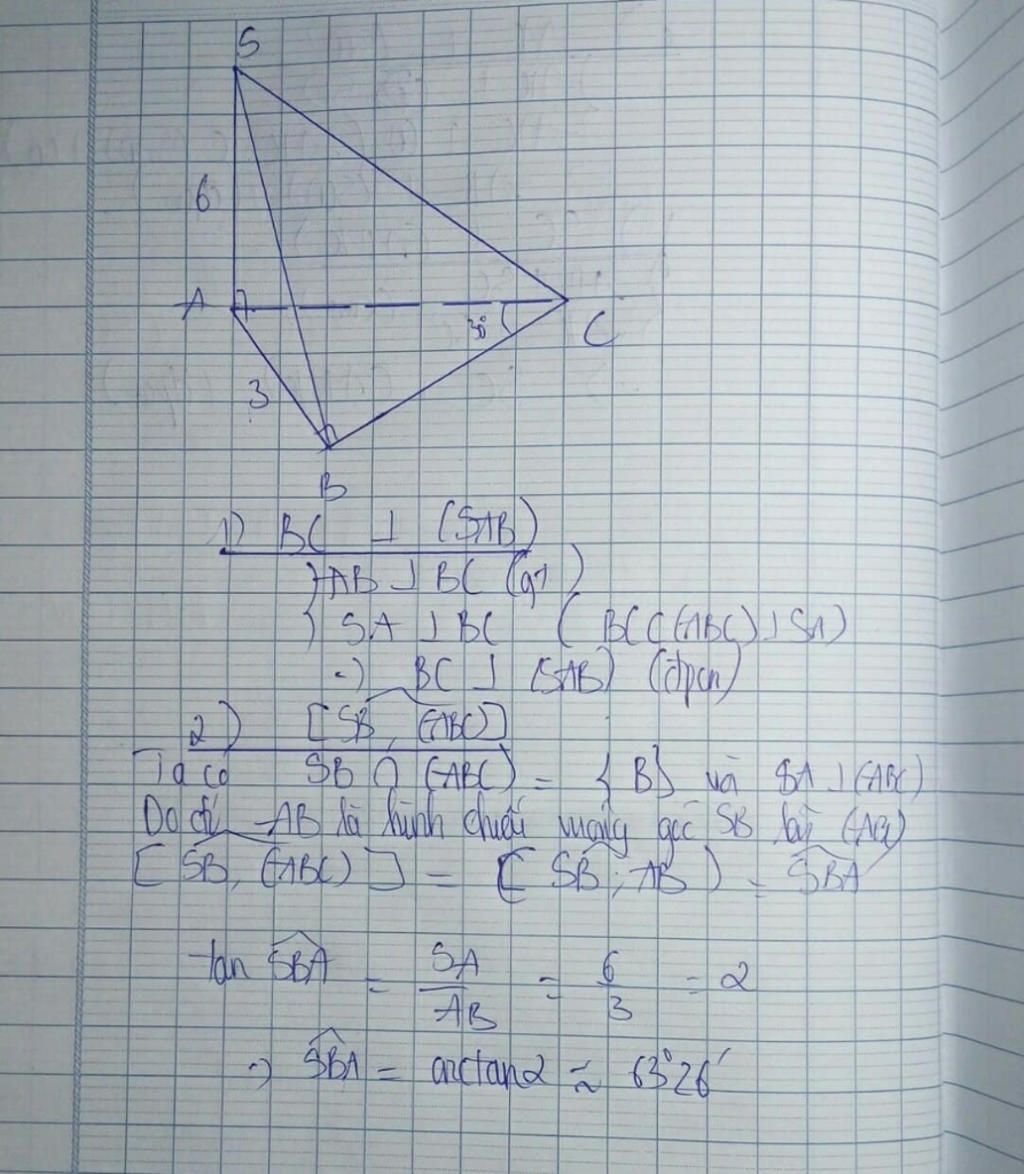 S
6
A
30°
C
3
B
1) BC ⊥ (SAB)
} AB ⊥ BC (gt)
} SA ⊥ BC ( BC ⊂ (ABC) ⊥ SA)
=) BC ⊥ (SAB) (đpcm)
2) [SB, (ABC)]
Ta có SB ∩ (ABC) = {B} và SA ⊥ (ABC)
Do đó AB là hình chiếu vuông góc SB lên (ABC)
[SB, (ABC)] = (SB; AB) = SBA
tan SBA = SA / AB = 6 / 3 = 2
=) SBA = arctan2 ≈ 63°26'